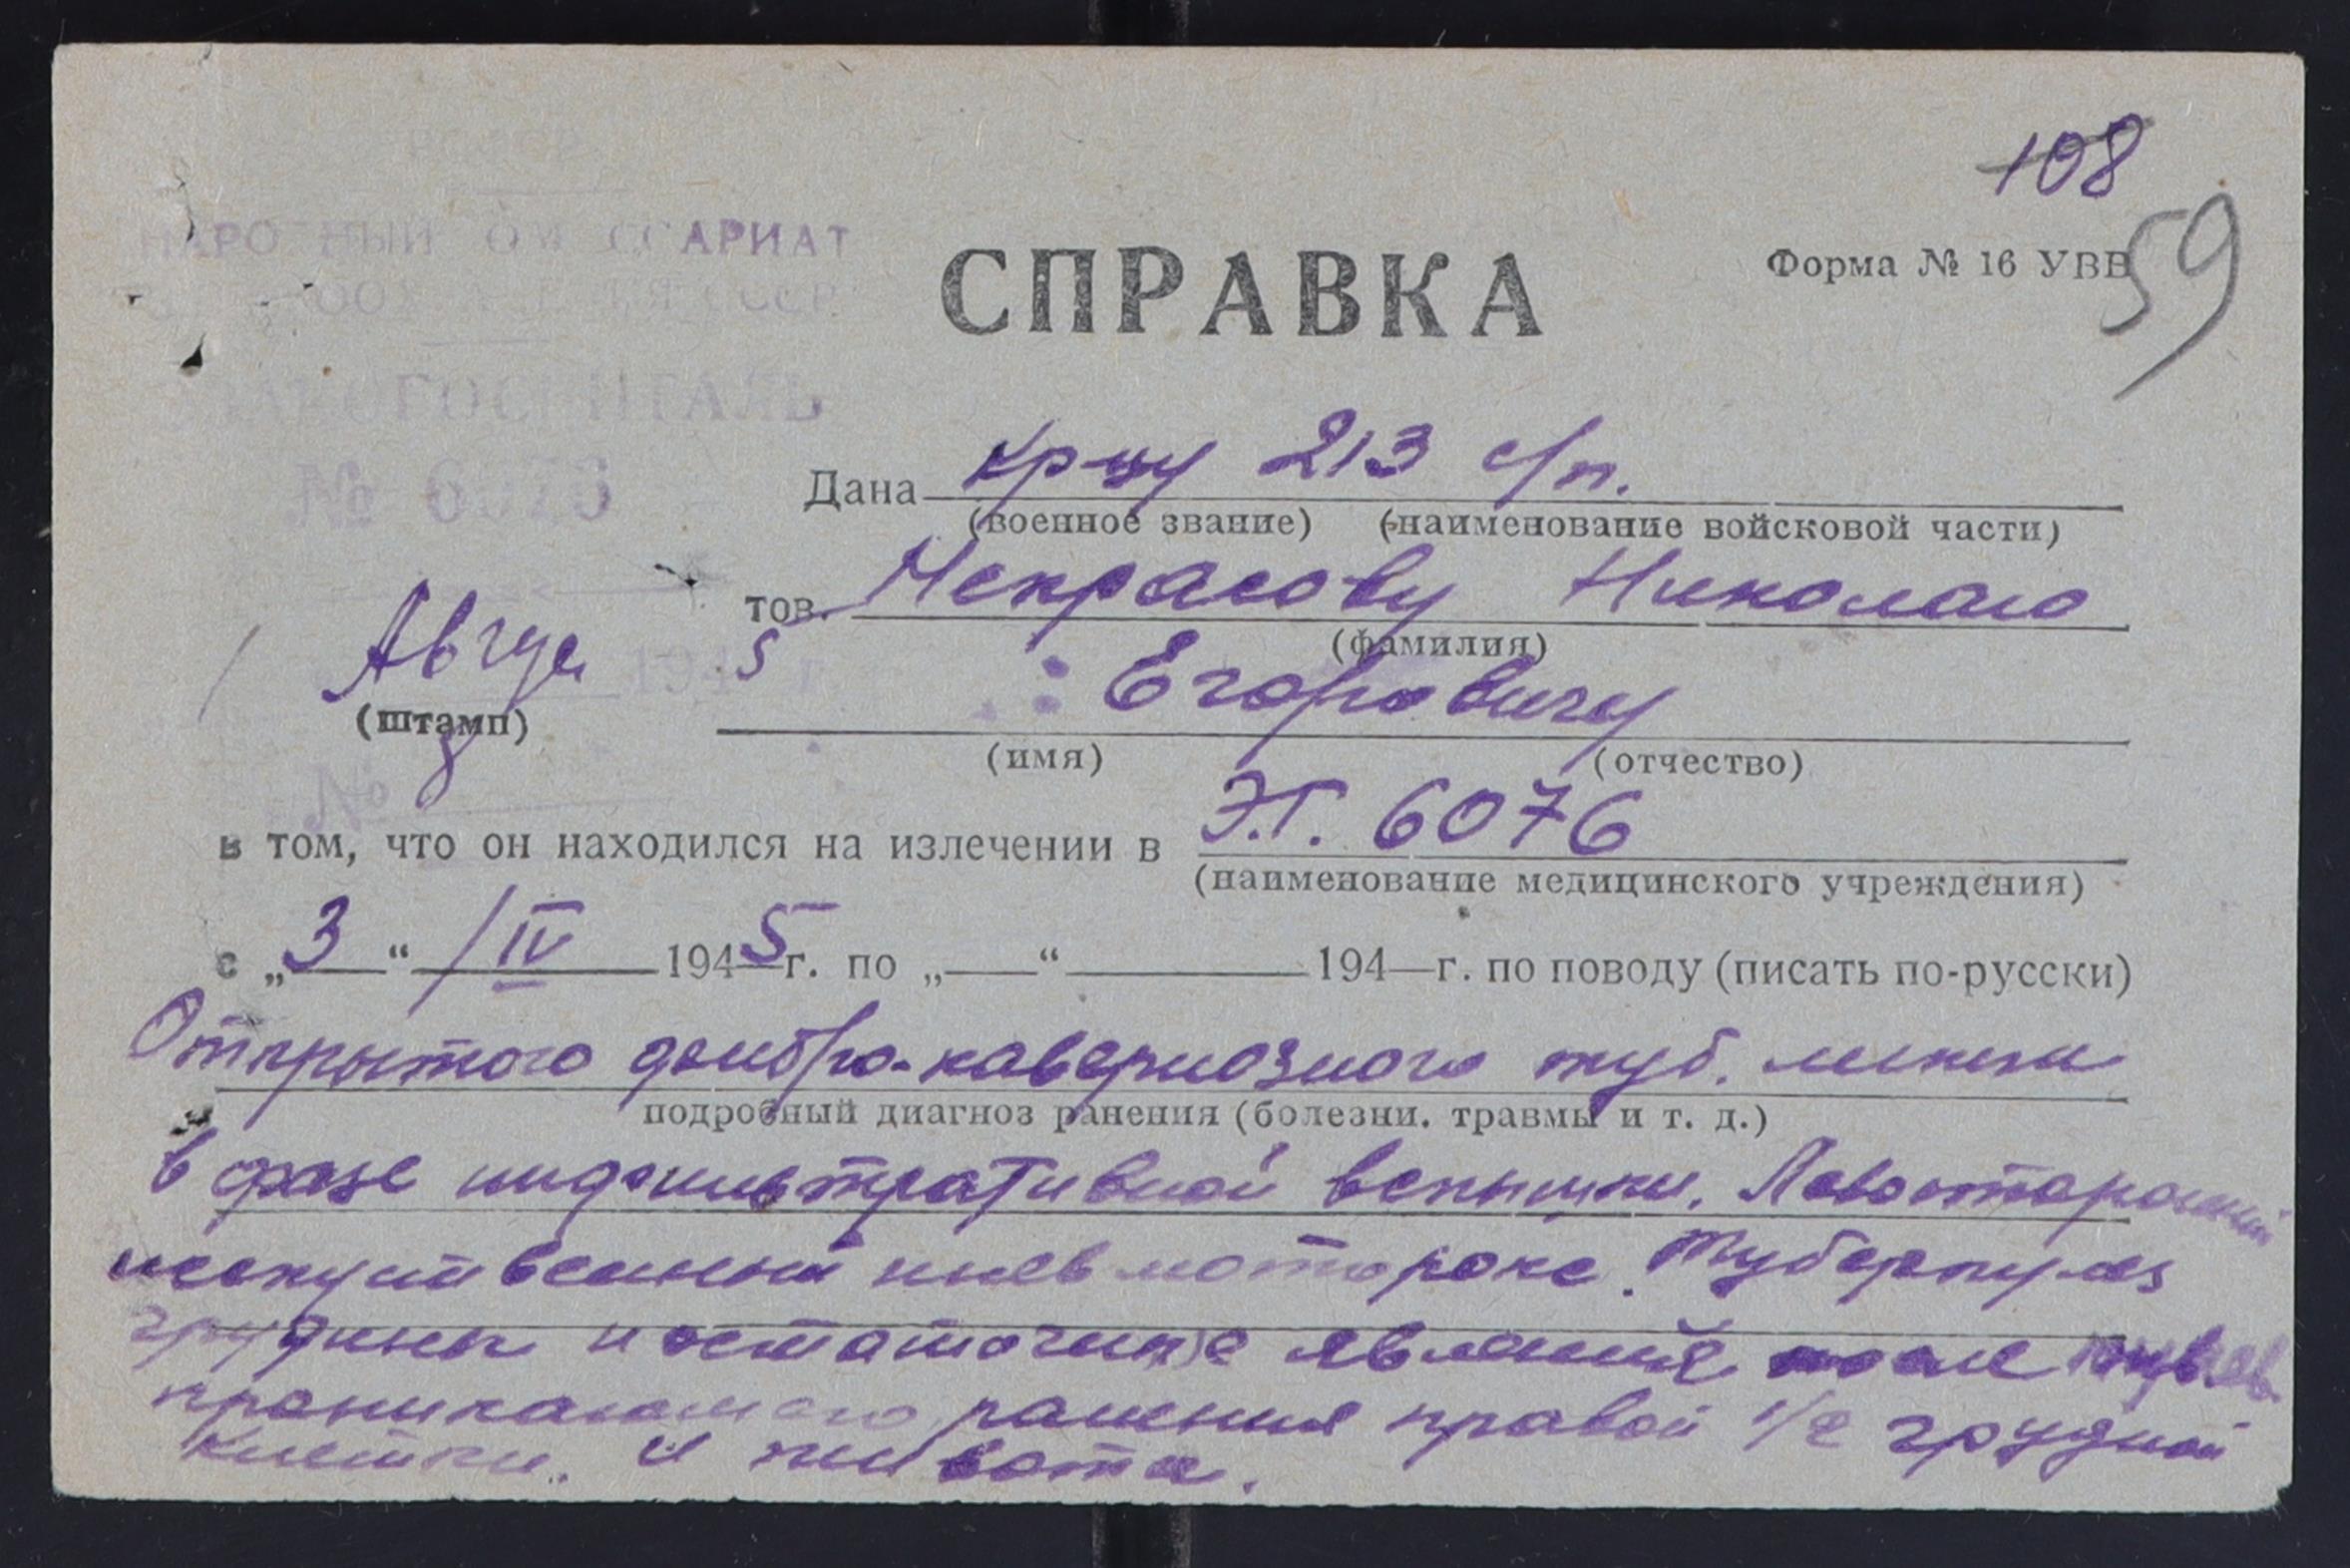 108
59
Форма № 16 УВВ
НАРОДНЫЙ КОМИССАРИАТ
СССР
ЭВАКОГОСПИТАЛЬ
№ 6076
СПРАВКА
Дана кр-цу 213 с/п.
(военное звание) (наименование войсковой части)
тов. Некрасову Николаю
(фамилия)
1 Август 1945 г.
(штамп)
Егоровичу
(имя) (отчество)
№ 8
в том, что он находился на излечении в Э.Г. 6076
(наименование медицинского учреждения)
с „3“ /IV 1945 г. по „—“ 194—г. по поводу (писать по-русски)
Открытого фиброно-кавернозного туб. легких
подробный диагноз ранения (болезни. травмы и т. д.)
в фазе инфильтративной вспышки. Левосторонний
искуственный пневмоторокс. Туберкулез
грудины и остаточные явлений после
проникающего ранения правой 1/2 грудной
клетки. и живота.